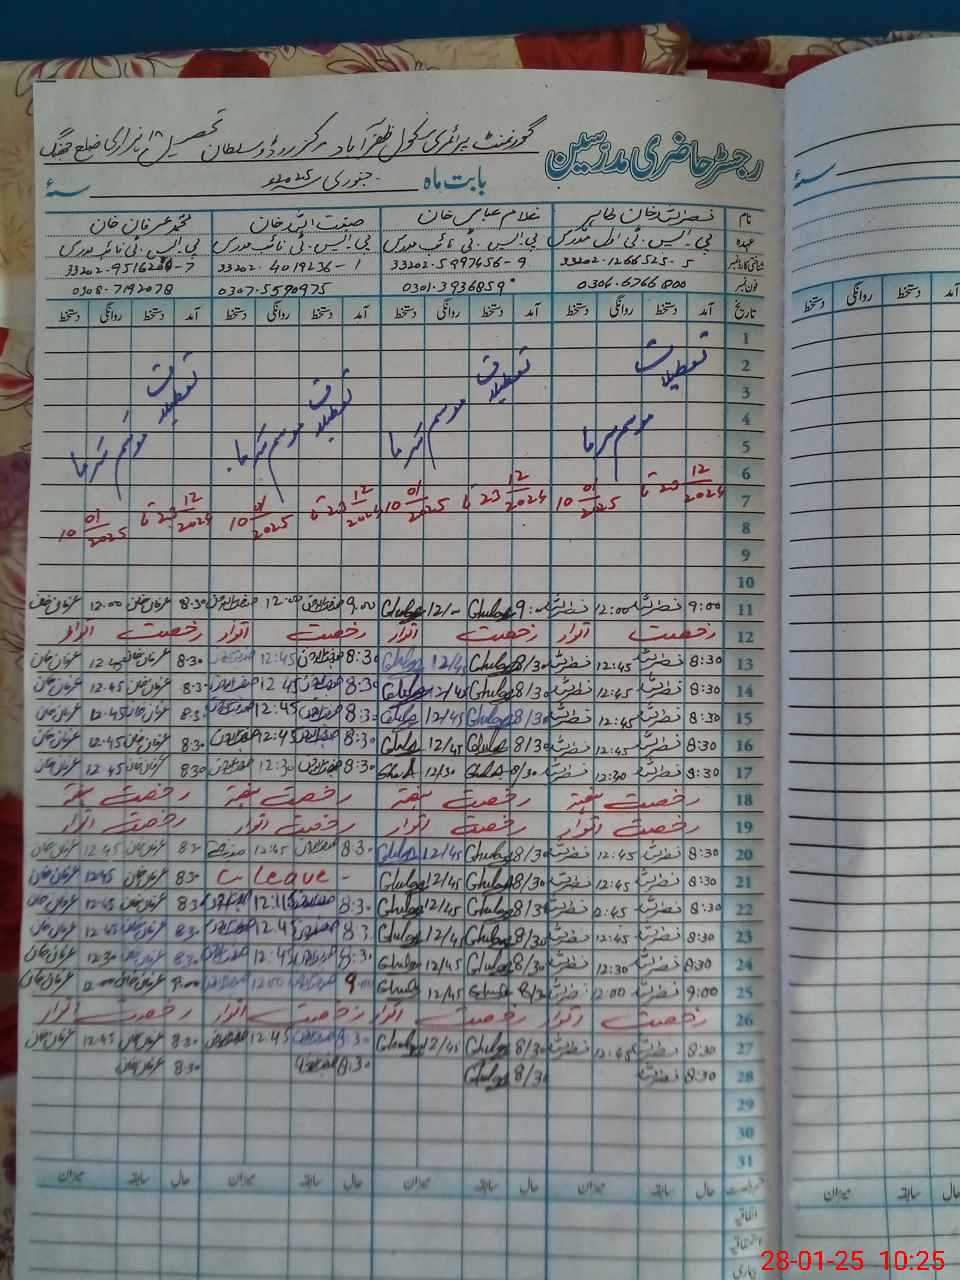 گورنمنٹ پرائمری سکول ظفر آباد مرکز روڈو سلطان تحصیل اٹھارہ ہزاری ضلع جھنگ
رجسٹر حاضری مدرسین
بابت ماہ جنوری 2025ء سنہء
نام نصر اللہ خان طاہر غلام عباس خان صبغت اللہ خان محمد عرفان خان
عہدہ پی۔ایس۔ٹی اول مدرس پی۔ایس۔ٹی نائب مدرس پی۔ایس۔ٹی نائب مدرس پی۔ایس۔ٹی نائب مدرس
شناختی کارڈ نمبر 33202.1266525-5 33202.5997456-9 33202.4019236-1
فون نمبر 0306.6766800 0301.3936859 0307.5590975 0308.7192078
تاریخ آمد دستخط روانگی دستخط آمد دستخط روانگی دستخط آمد دستخط روانگی دستخط آمد دستخط روانگی دستخط
1
2 تعطیلات تعطیلات تعطیلات تعطیلات
3
4 موسم سرما موسم سرما موسم سرما موسم سرما
5
6
7 23 12/2024 تا 10 01/2025 23 12/2024 تا 10 01/2025 23 12/2024 تا 10 01/2025 23 12/2024 تا 10 01/2025
8
9
10
11 9:00 نصر اللہ 12:00 نصر اللہ 9:00 Ghulam 12/- Ghulam 9:00 12:00 8:30 عرفان خان 12:00 عرفان خان
12 رخصت اتوار رخصت اتوار رخصت اتوار رخصت اتوار
13 8:30 نصر اللہ 12:45 نصر اللہ 8/30 Ghulam 12/45 Ghulam 8:30 12:45 8:30 عرفان خان 12:45 عرفان خان
14 8:30 نصر اللہ 12:45 نصر اللہ 8/30 Ghulam 12/45 Ghulam 8:30 12:45 8:30 عرفان خان 12:45 عرفان خان
15 8:30 نصر اللہ 12:45 نصر اللہ 8/30 Ghulam 12/45 Ghulam 8:30 12:45 8:30 عرفان خان 12:45 عرفان خان
16 8:30 نصر اللہ 12:45 نصر اللہ 8/30 Ghulam 12/45 Ghulam 8:30 12:45 8:30 عرفان خان 12:45 عرفان خان
17 8:30 نصر اللہ 12:30 نصر اللہ 8/30 Ghulam 12/30 Ghulam 8:30 12:30 8:30 عرفان خان 12:45 عرفان خان
18 رخصت ہفتہ رخصت ہفتہ رخصت ہفتہ رخصت ہفتہ
19 رخصت اتوار رخصت اتوار رخصت اتوار رخصت اتوار
20 8:30 نصر اللہ 12:45 نصر اللہ 8/30 Ghulam 12/45 Ghulam 8:30 12:45 8:30 عرفان خان 12:45 عرفان خان
21 8:30 نصر اللہ 12:45 نصر اللہ 8/30 Ghulam 12/45 Ghulam C leave - 8:30 عرفان خان 12:45 عرفان خان
22 8:30 نصر اللہ 12:45 نصر اللہ 8/30 Ghulam 12/45 Ghulam 8:30 8:30 عرفان خان 12:45 عرفان خان
23 8:30 نصر اللہ 12:45 نصر اللہ 8/30 Ghulam 12/45 Ghulam 8:30 12:45 8:30 عرفان خان 12:45 عرفان خان
24 8:30 نصر اللہ 12:30 نصر اللہ 8/30 Ghulam 12/45 Ghulam 8:30 12:45 8:30 عرفان خان 12:30 عرفان خان
25 9:00 نصر اللہ 12:00 نصر اللہ Ghulam 12/45 Ghulam 9:00 12:00 9:00 عرفان خان 12:00 عرفان خان
26 رخصت اتوار رخصت اتوار رخصت اتوار رخصت اتوار
27 8:30 نصر اللہ 12:45 نصر اللہ 8/30 Ghulam 12/45 Ghulam 8:30 12:45 8:30 عرفان خان 12:45 عرفان خان
28 8:30 نصر اللہ 8/30 Ghulam 8:30 8:30 عرفان خان
29
30
31
حال سابقہ میزان حال سابقہ میزان حال سابقہ میزان حال سابقہ میزان
اتفاقیہ
استحقاقیہ
بیماری
سنہء
آمد دستخط روانگی دستخط
حال سابقہ میزان
28-01-25 10:25